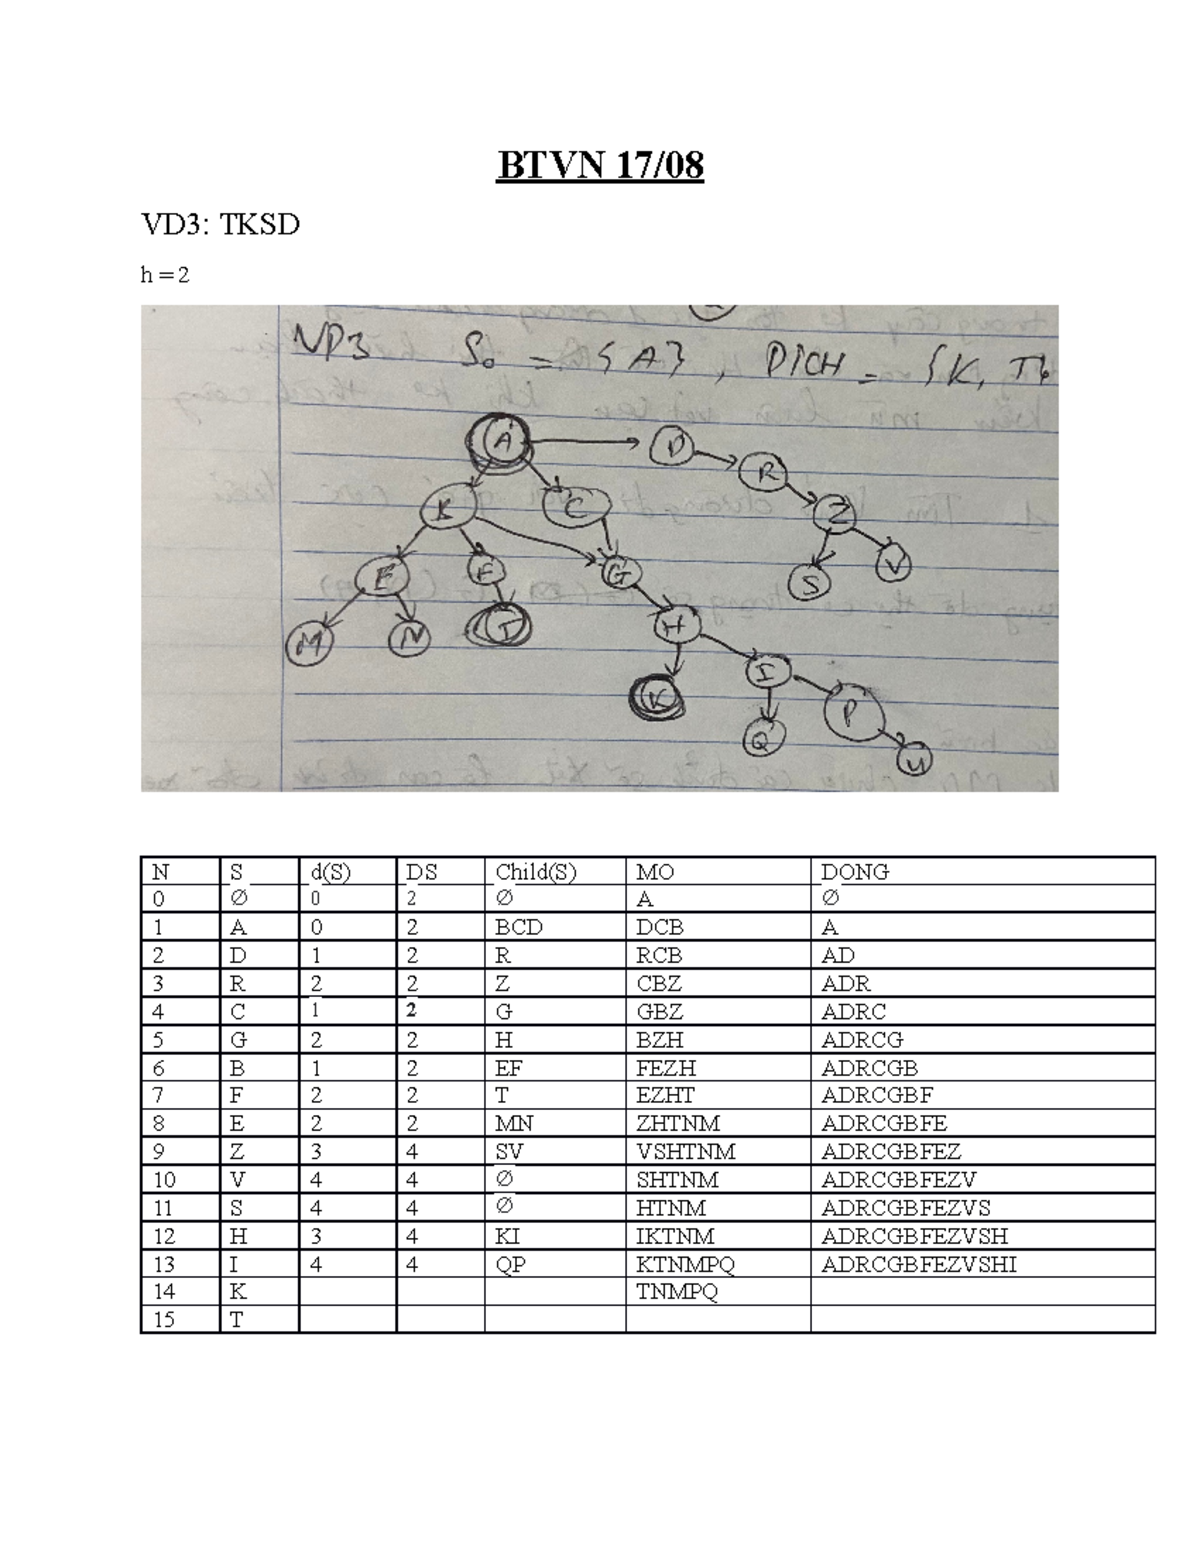 BTVN 17/08
VD3: TKSD
h = 2
S₀ = {A}, DICH = {K, T}
A
D
R
C
Z
E
F
G
S
V
M
N
T
H
K
I
Q
P
U
N S d(S) DS Child(S) MO DONG
0 ∅ 0 2 ∅ A ∅
1 A 0 2 BCD DCB A
2 D 1 2 R RCB AD
3 R 2 2 Z CBZ ADR
4 C 1 2 G GBZ ADRC
5 G 2 2 H BZH ADRCG
6 B 1 2 EF FEZH ADRCGB
7 F 2 2 T EZHT ADRCGBF
8 E 2 2 MN ZHTNM ADRCGBFE
9 Z 3 4 SV VSHTNM ADRCGBFEZ
10 V 4 4 ∅ SHTNM ADRCGBFEZV
11 S 4 4 ∅ HTNM ADRCGBFEZVS
12 H 3 4 KI IKTNM ADRCGBFEZVSH
13 I 4 4 QP KTNMPQ ADRCGBFEZVSHI
14 K TNMPQ
15 T